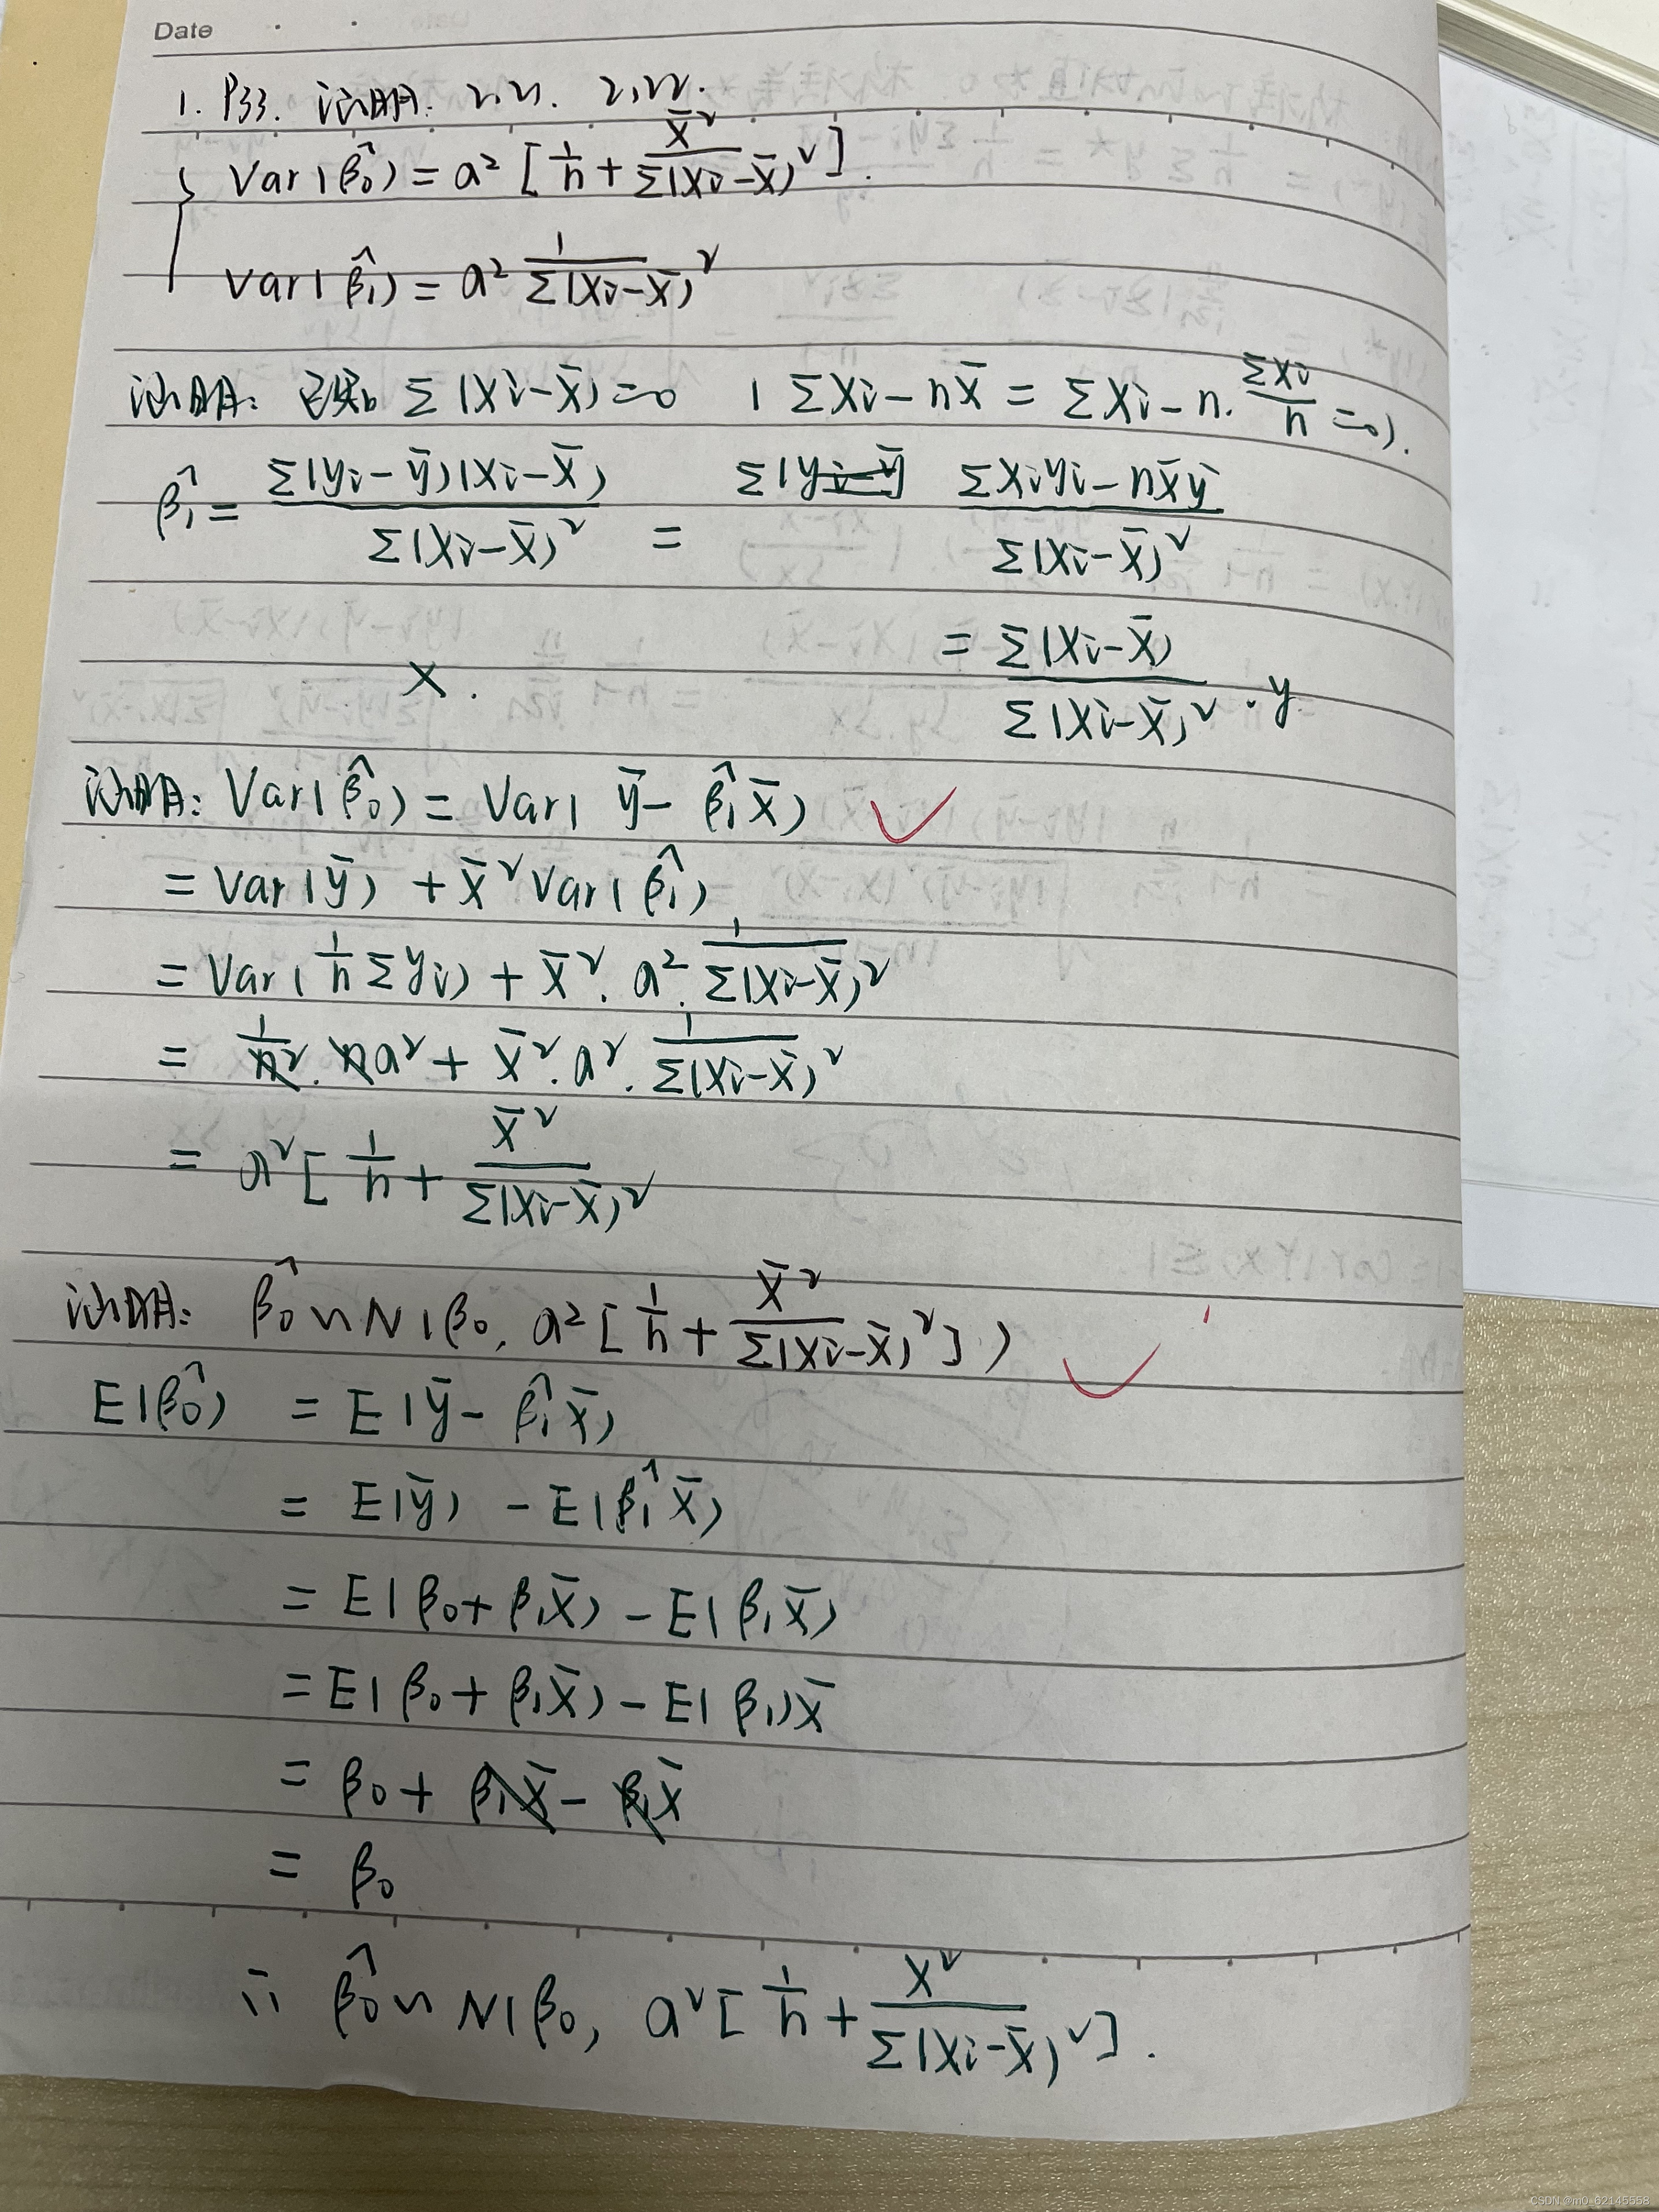 Date
1. P33. 证明: 2,21. 2,22.
Var(β̂₀) = a² [1/n + x̄²/Σ(xi-x̄)²].
Var(β̂₁) = a² 1/Σ(xi-x̄)²
证明: 已知 Σ(xi-x̄)=0 (Σxi-nx̄ = Σxi-n·Σxi/n=0).
β̂₁ = Σ(yi-ȳ)(xi-x̄)/Σ(xi-x̄)² = Σ(yi-ȳ) Σxiyi-nx̄ȳ/Σ(xi-x̄)²
= Σ(xi-x̄)/Σ(xi-x̄)² · y
×.
证明: Var(β̂₀) = Var(ȳ-β̂₁x̄) ✓
= Var(ȳ) + x̄²Var(β̂₁)
= Var(1/n Σyi) + x̄²·a²·1/Σ(xi-x̄)²
= 1/n²·na² + x̄²·a²·1/Σ(xi-x̄)²
= a²[1/n + x̄²/Σ(xi-x̄)²
证明: β̂₀~N(β₀, a²[1/n + x̄²/Σ(xi-x̄)²]) ✓
E(β̂₀) = E(ȳ-β̂₁x̄)
= E(ȳ) - E(β̂₁x̄)
= E(β₀+β₁x̄) - E(β₁x̄)
= E(β₀+β₁x̄) - E(β₁)x̄
= β₀ + β₁x̄ - β₁x̄
= β₀
∴ β̂₀~N(β₀, a²[1/n + x²/Σ(xi-x̄)²].
CSDN @m0_62145558